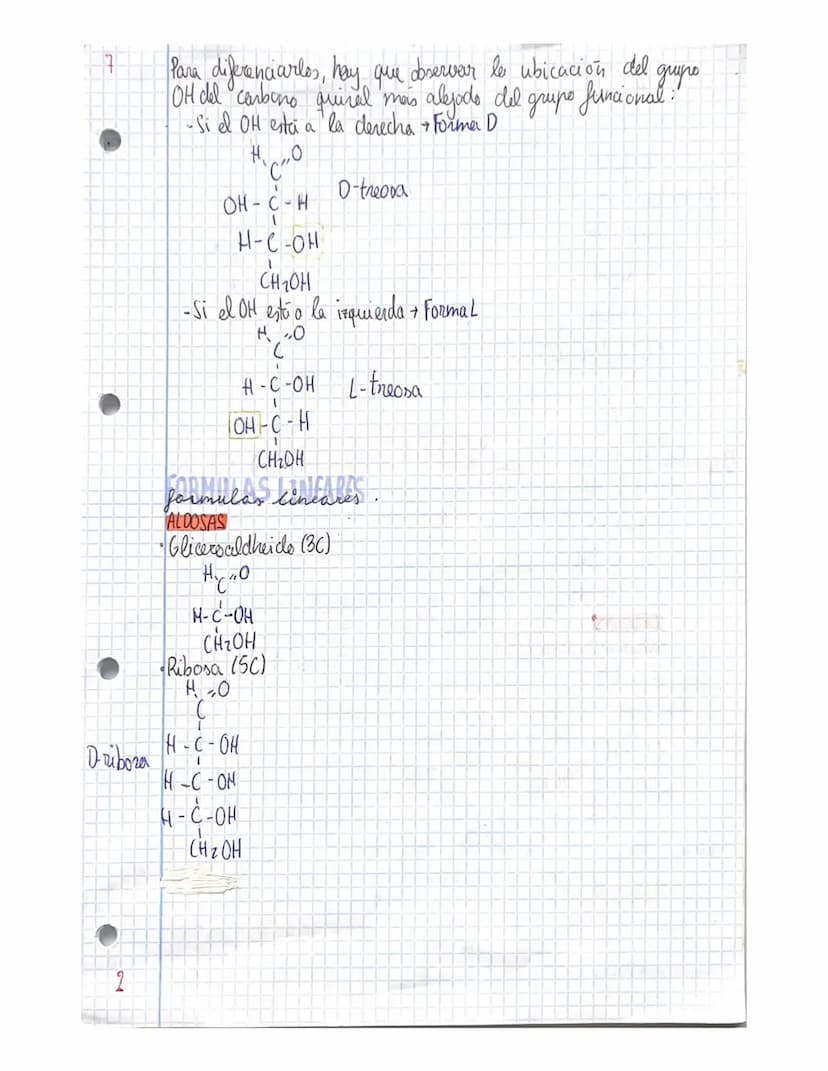 7
Para diferenciarlos, hay que observar la ubicación del grupo
OH del carbono quiral más alejado del grupo funcional:
- Si el OH está a la derecha → Forma D
H O
C
OH - C - H D-treosa
H - C - OH
CH2OH
- Si el OH está a la izquierda → Forma L
H O
C
H - C - OH L-treosa
OH - C - H
CH2OH
FORMULAS LINEARES
formulas lineares.
ALDOSAS
· Gliceroaldheido (3C)
H O
C
H - C - OH
CH2OH
· Ribosa (5C)
H O
C
H - C - OH
D-ribosa
H - C - OH
H - C - OH
CH2OH
2